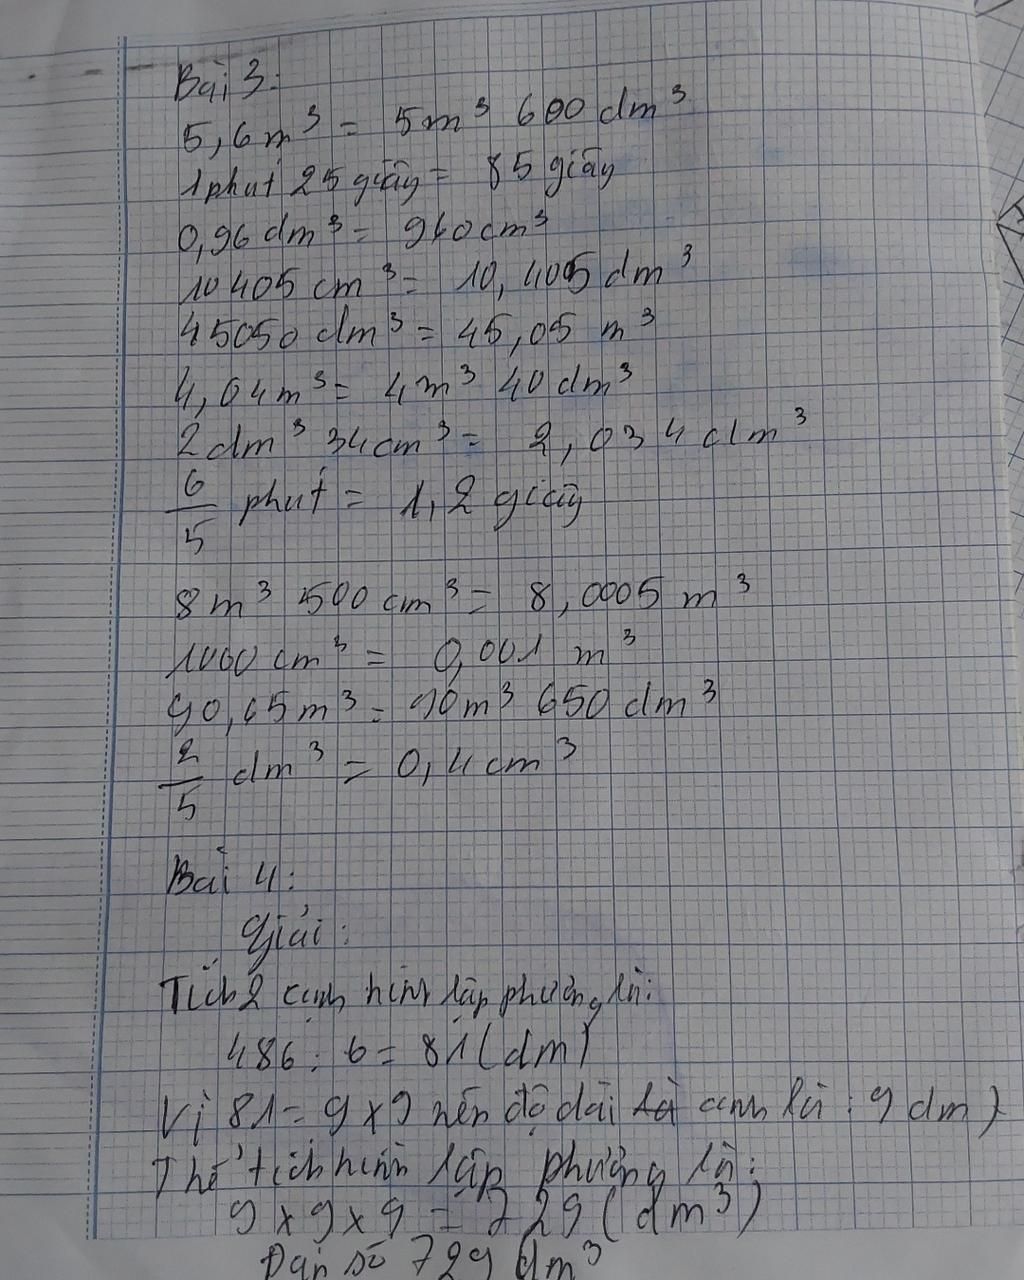 Bài 3:
5,6m³ = 5m³ 600 dm³
1 phút 25 giây = 85 giây
0,96 dm³ = 960 cm³
10405 cm³ = 10,405 dm³
45050 dm³ = 45,05 m³
4,04m³ = 4m³ 40 dm³
2 dm³ 34cm³ = 2,034 dm³
6/5 phút = 1,2 giây
8m³ 500 cm³ = 8,0005 m³
1000 cm³ = 0,001 m³
90,65m³ = 90m³ 650 dm³
2/5 dm³ = 0,4 cm³
Bài 4:
Giải:
Tích 2 cạnh hình lập phương là:
486 : 6 = 81 (dm)
Vì 81 = 9 x 9 nên độ dài cạnh là : 9 dm)
Thể tích hình lập phương là:
9 x 9 x 9 = 729 (dm³)
Đáp số 729 dm³